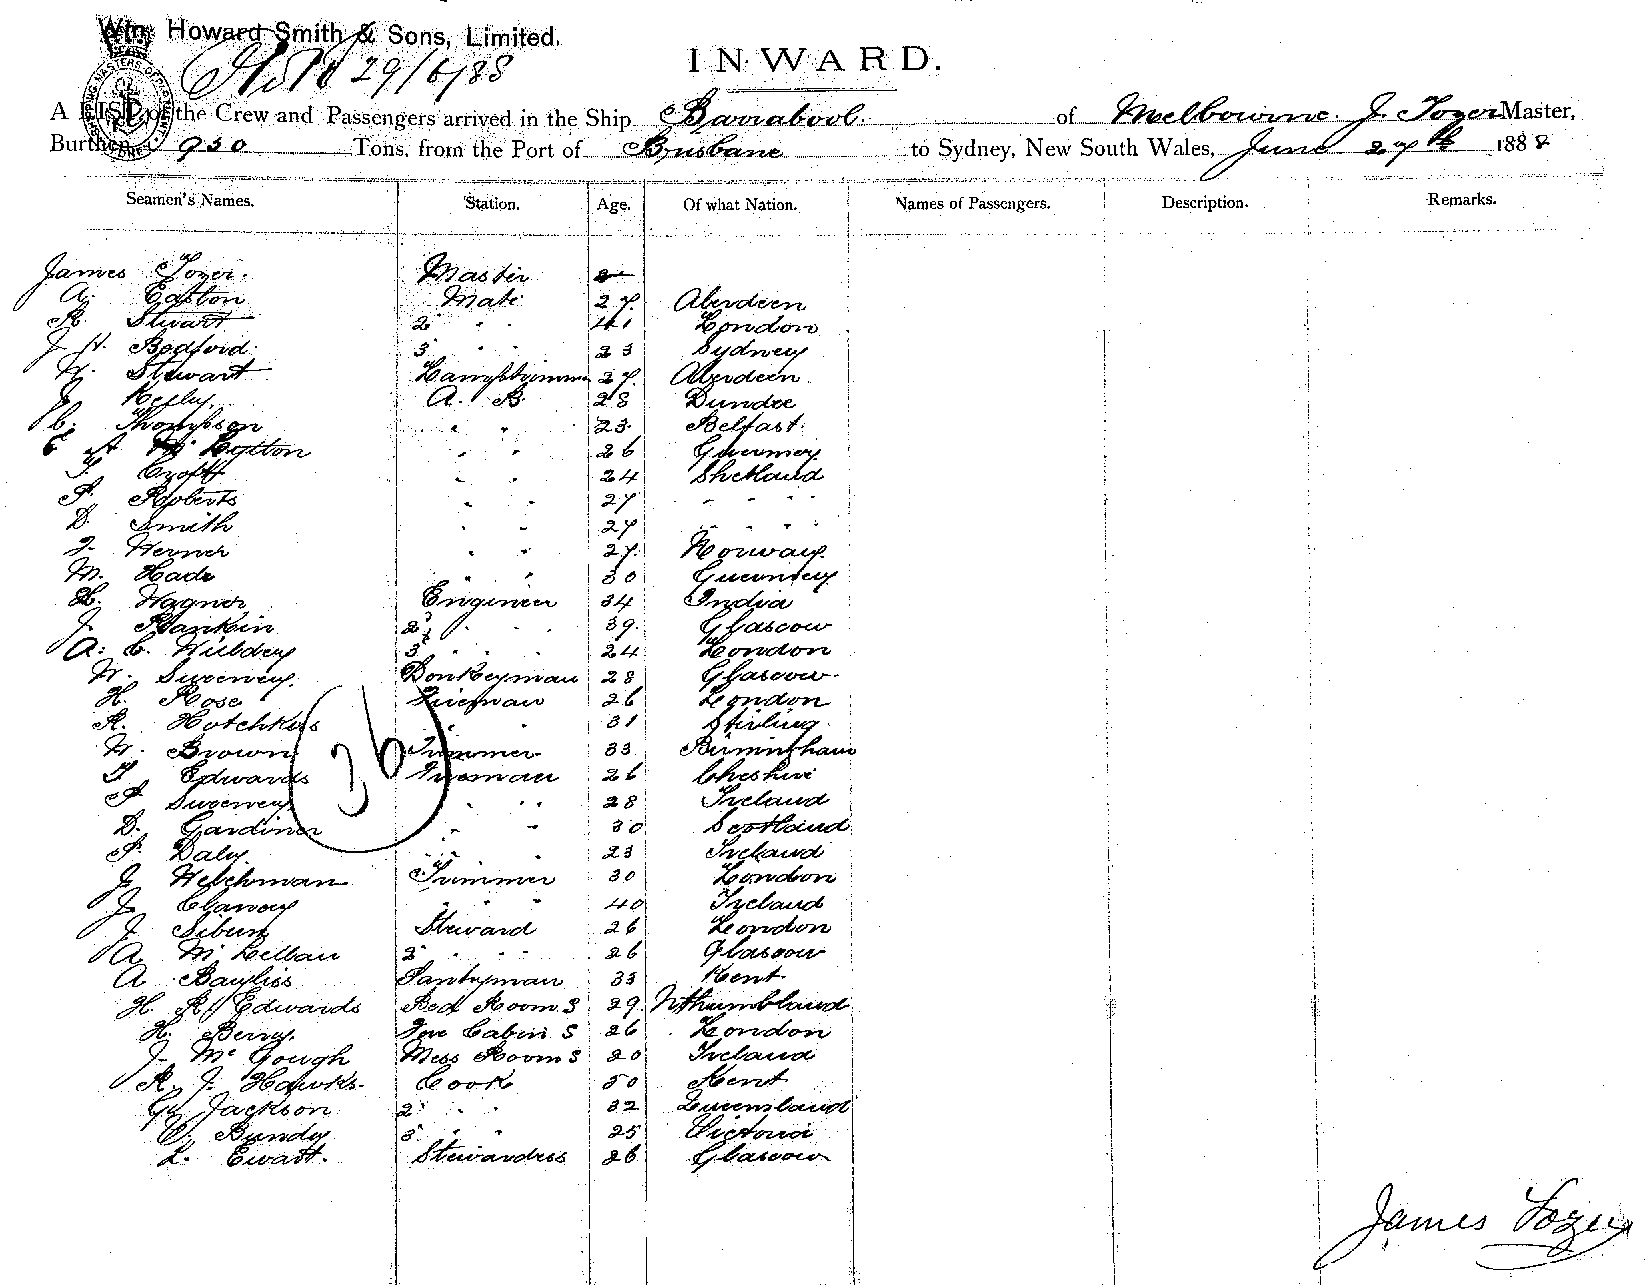 Wm. Howard Smith & Sons, Limited.
29/6/88
INWARD.
A LIST of the Crew and Passengers arrived in the Ship Barrabool of Melbourne. J. Tozer Master,
Burthen 930 Tons, from the Port of Brisbane to Sydney, New South Wales, June 27th 1888
Seamen's Names. Station. Age. Of what Nation. Names of Passengers. Description. Remarks.
James Tozer. Master
A. Easton Mate 27 Aberdeen
R. Stuart 2 " " 41 London
J. H. Bedford 3 " " 23 Sydney
W. Stewart Lamptrimmer 27 Aberdeen
Kelly A. B 28 Dundee
C. Thompson " " 23 Belfast
Lytton " " 26 Guernsey
T. Croft " " 24 Shetland
P. Roberts " " 27 " " "
D. Smith " " 27 " " "
J. Werner " " 27 Norway
M. Hade " " 30 Guernsey
H. Wagner Engineer 34 India
J. Rankin 2 " " 39 Glascow
A. C. Wildey 3 " " 24 London
W. Sweeney Donkeyman 28 Glascow
H. Rose Fireman 26 London
R. Hotchkiss " " 31 Stirling
W. Brown Trimmer 33 Birmingham
T. Edwards Fireman 26 Cheshire
P. Sweeney " " 28 Ireland
D. Gardiner " " 30 Scotland
P. Daly " " 23 Ireland
J. Welchman Trimmer 30 London
J. Clancy " " 40 Ireland
J. Sibun Steward 26 London
A. McLellan 2 " " 26 Glascow
A. Bayliss Pantryman 33 Kent
H. R. Edwards Bed Room S 29 Nthumbland
H. Berry Fore Cabin S 26 London
J. McGough Mess Room S 20 Ireland
R. J. Hawks Cook 50 Kent
G. Jackson 2 " " 32 Queensland
C. Bundy 3 " " 25 Victoria
L. Ewart. Stewardess 26 Glascow
36
James Tozer